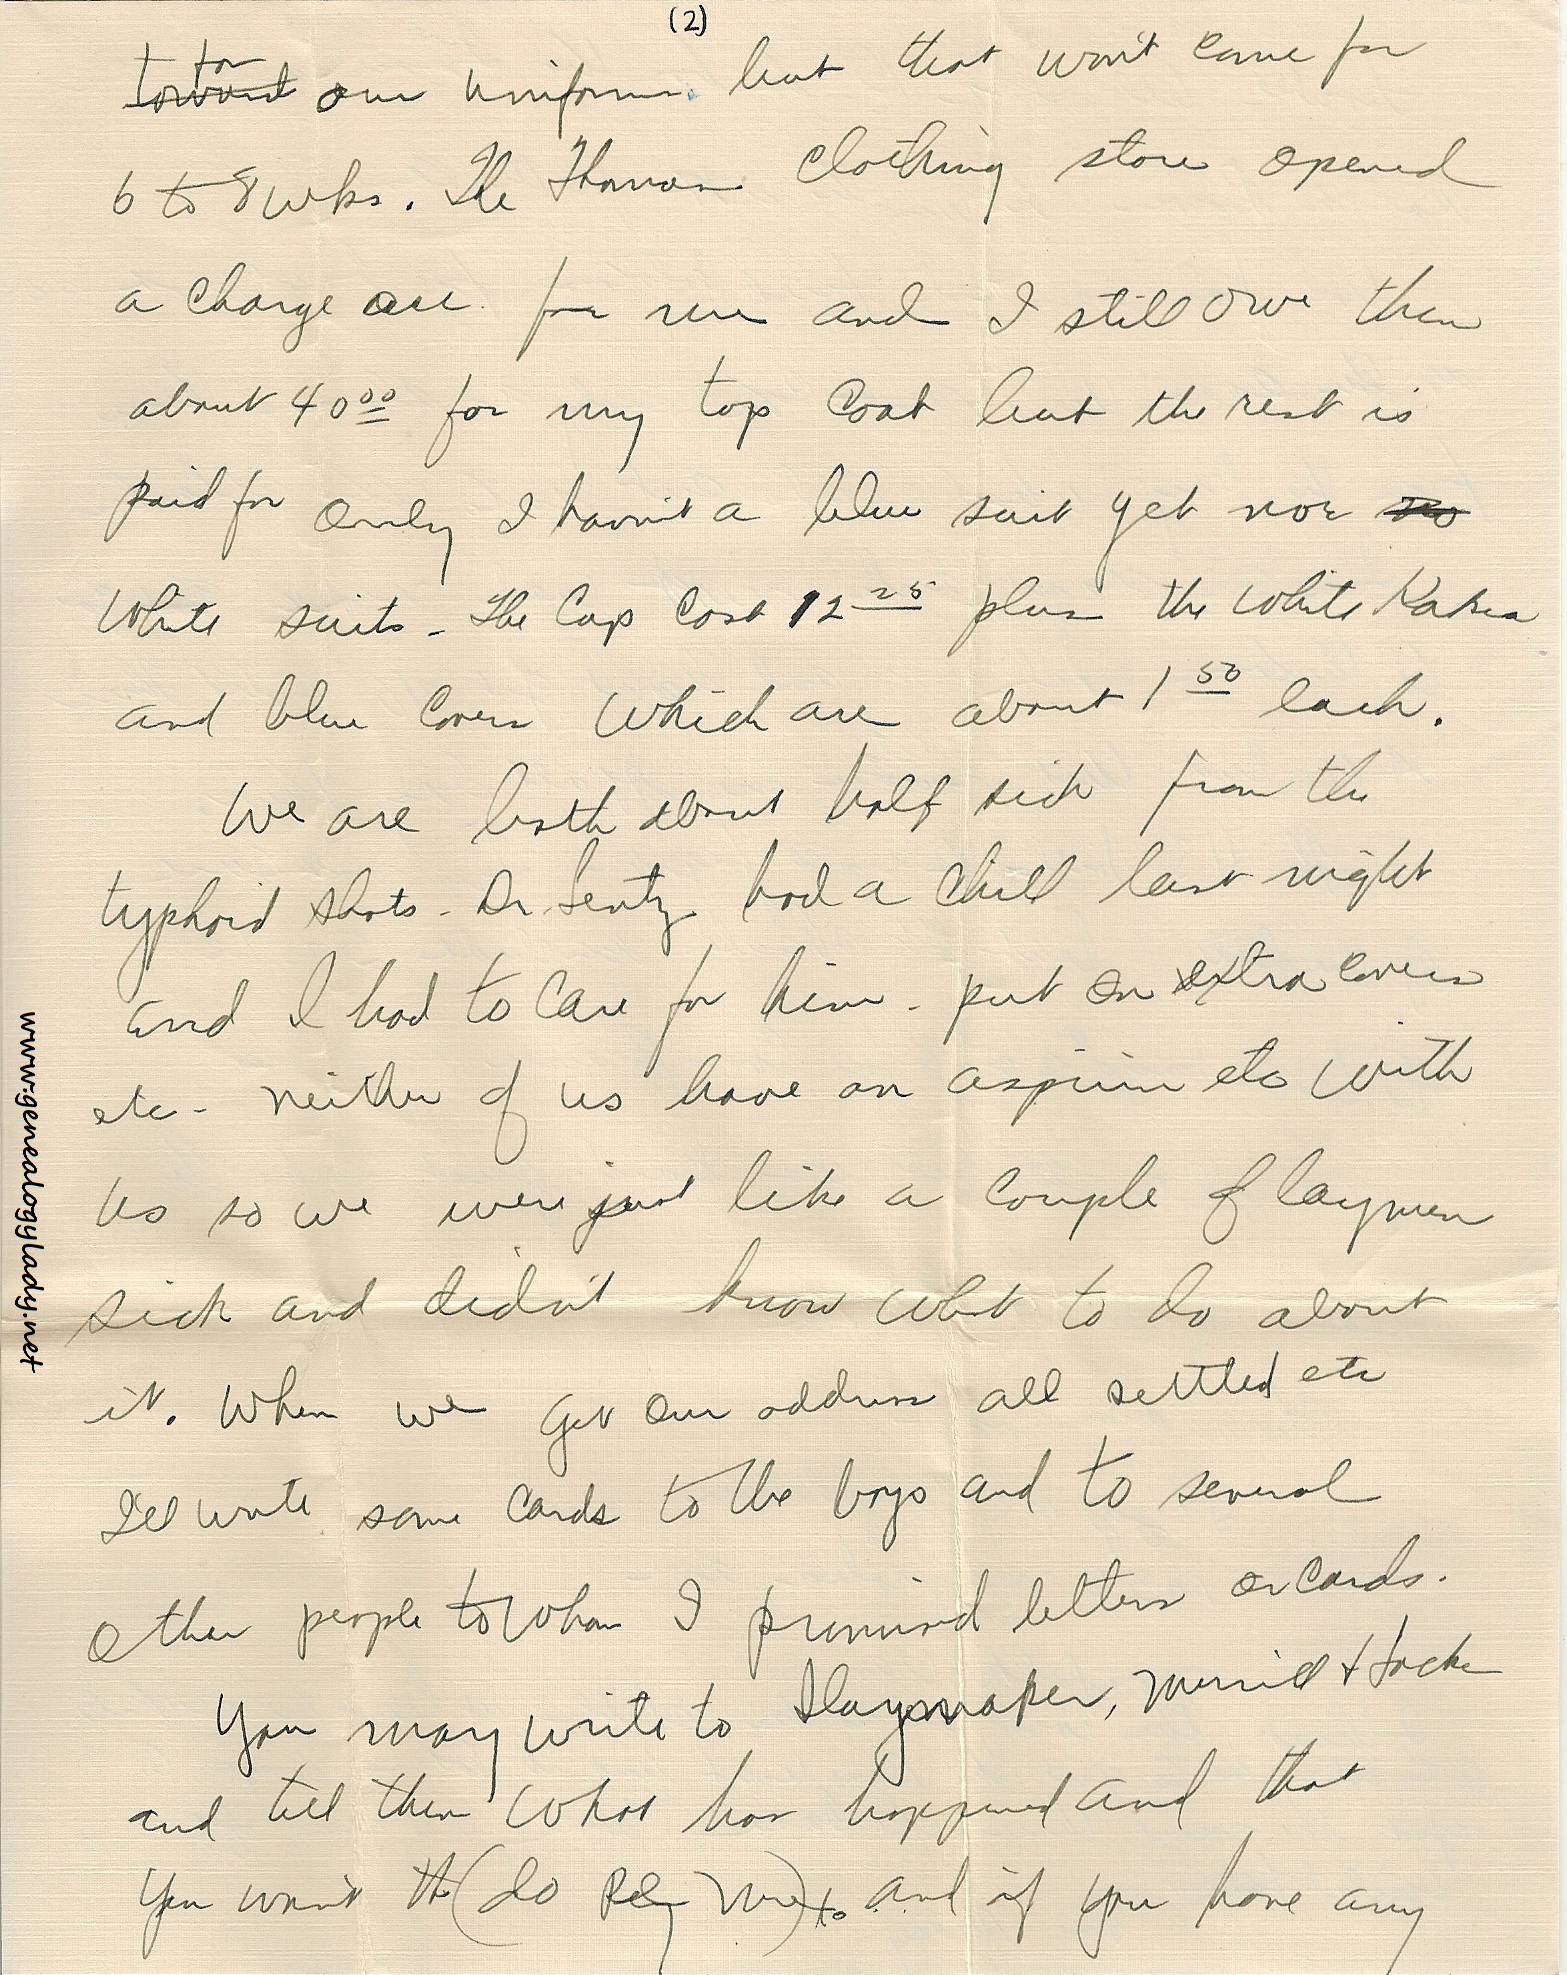 (2)
for
toward our uniforms. but that won't come for
6 to 8 wks. The Thomas clothing store opened
a charge acc. for me and I still owe them
about 40 00 for my top coat but the rest is
paid for only I havn't a blue suit yet nor no
white suits - The Cap cost 12 25 plus the white
and blue covers which are about 1 50 each.
We are both about half sick from the
typhoid shots - Dr. Sentz had a chill last night
and I had to care for him - put on extra covers
etc - neither of us have an aspirin etc with
us so we were just like a couple of laymen
sick and didn't know what to do about
it. When we get our address all settled etc
I'll write some cards to the boys and to several
other people to whom I promised letters or cards.
You may write to Slaymaker, Merrill & Locke
and tell them what has happened and that
you want the (do Rey Me) to and if you have any
www.genealogylady.net